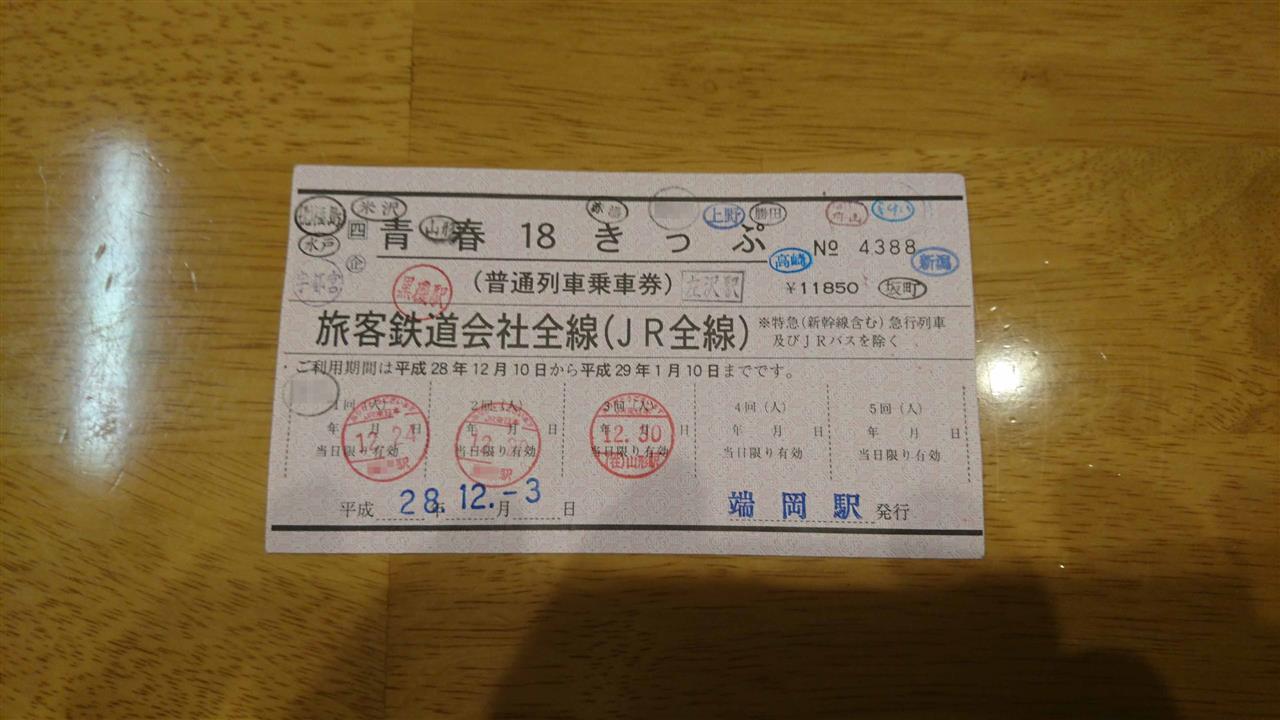 米沢
赤湯
上野
勝田
水戸
四
企
山形
青春18きっぷ
高崎
№ 4388
新潟
黒磯駅
(普通列車乗車券)
左沢駅
¥11850
坂町
旅客鉄道会社全線(JR全線)
※特急(新幹線含む)急行列車
及びJRバスを除く
ご利用期間は平成28年12月10日から平成29年1月10日までです。
1回(人) 2回(人) 3回(人) 4回(人) 5回(人)
年 月 日 年 月 日 年 月 日 年 月 日 年 月 日
12.24
駅
駅
12.30
(在)山形駅
当日限り有効 当日限り有効 当日限り有効 当日限り有効 当日限り有効
平成 28年 12.月-3日 端岡駅 発行